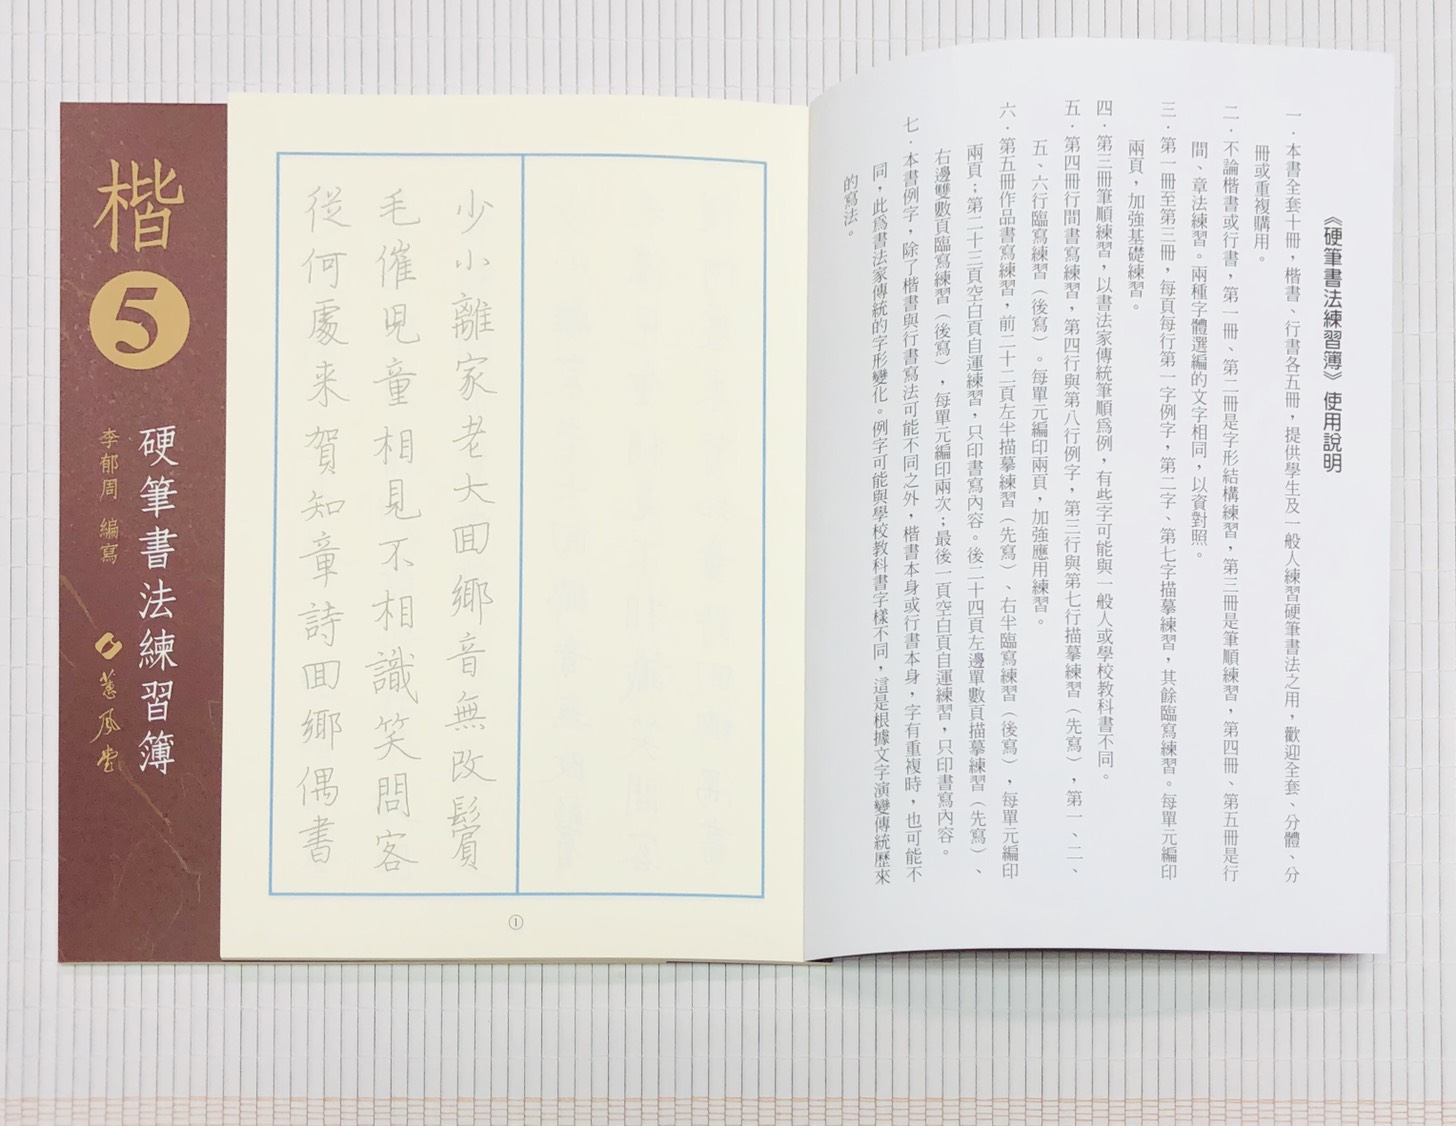 《硬筆書法練習簿》使用說明
一．本書全套十冊，楷書、行書各五冊，提供學生及一般人練習硬筆書法之用，歡迎全套、分體、分
冊或重複購用。
二．不論楷書或行書，第一冊、第二冊是字形結構練習，第三冊是筆順練習，第四冊、第五冊是行
間、章法練習。兩種字體選編的文字相同，以資對照。
三．第一冊至第三冊，每頁每行第一字例字，第二字、第七字描摹練習，其餘臨寫練習。每單元編印
兩頁，加強基礎練習。
四．第三冊筆順練習，以書法家傳統筆順爲例，有些字可能與一般人或學校教科書不同。
五．第四冊行間書寫練習，第四行與第八行例字，第三行與第七行描摹練習（先寫），第一、二、
五、六行臨寫練習（後寫）。每單元編印兩頁，加強應用練習。
六．第五冊作品書寫練習，前二十二頁左半描摹練習（先寫）、右半臨寫練習（後寫），每單元編印
兩頁；第二十三頁空白頁自運練習，只印書寫內容。後二十四頁左邊單數頁描摹練習（先寫）、
右邊雙數頁臨寫練習（後寫），每單元編印兩次；最後一頁空白頁自運練習，只印書寫內容。
七．本書例字，除了楷書與行書寫法可能不同之外，楷書本身或行書本身，字有重複時，也可能不
同，此爲書法家傳統的字形變化。例字可能與學校教科書字樣不同，這是根據文字演變傳統歷來
的寫法。
少小離家老大回鄉音無改鬢
毛催児童相見不相識笑問客
從何處来賀知章詩回鄉偶書
①
楷
5
硬筆書法練習簿
李郁周 編寫
蕙風堂